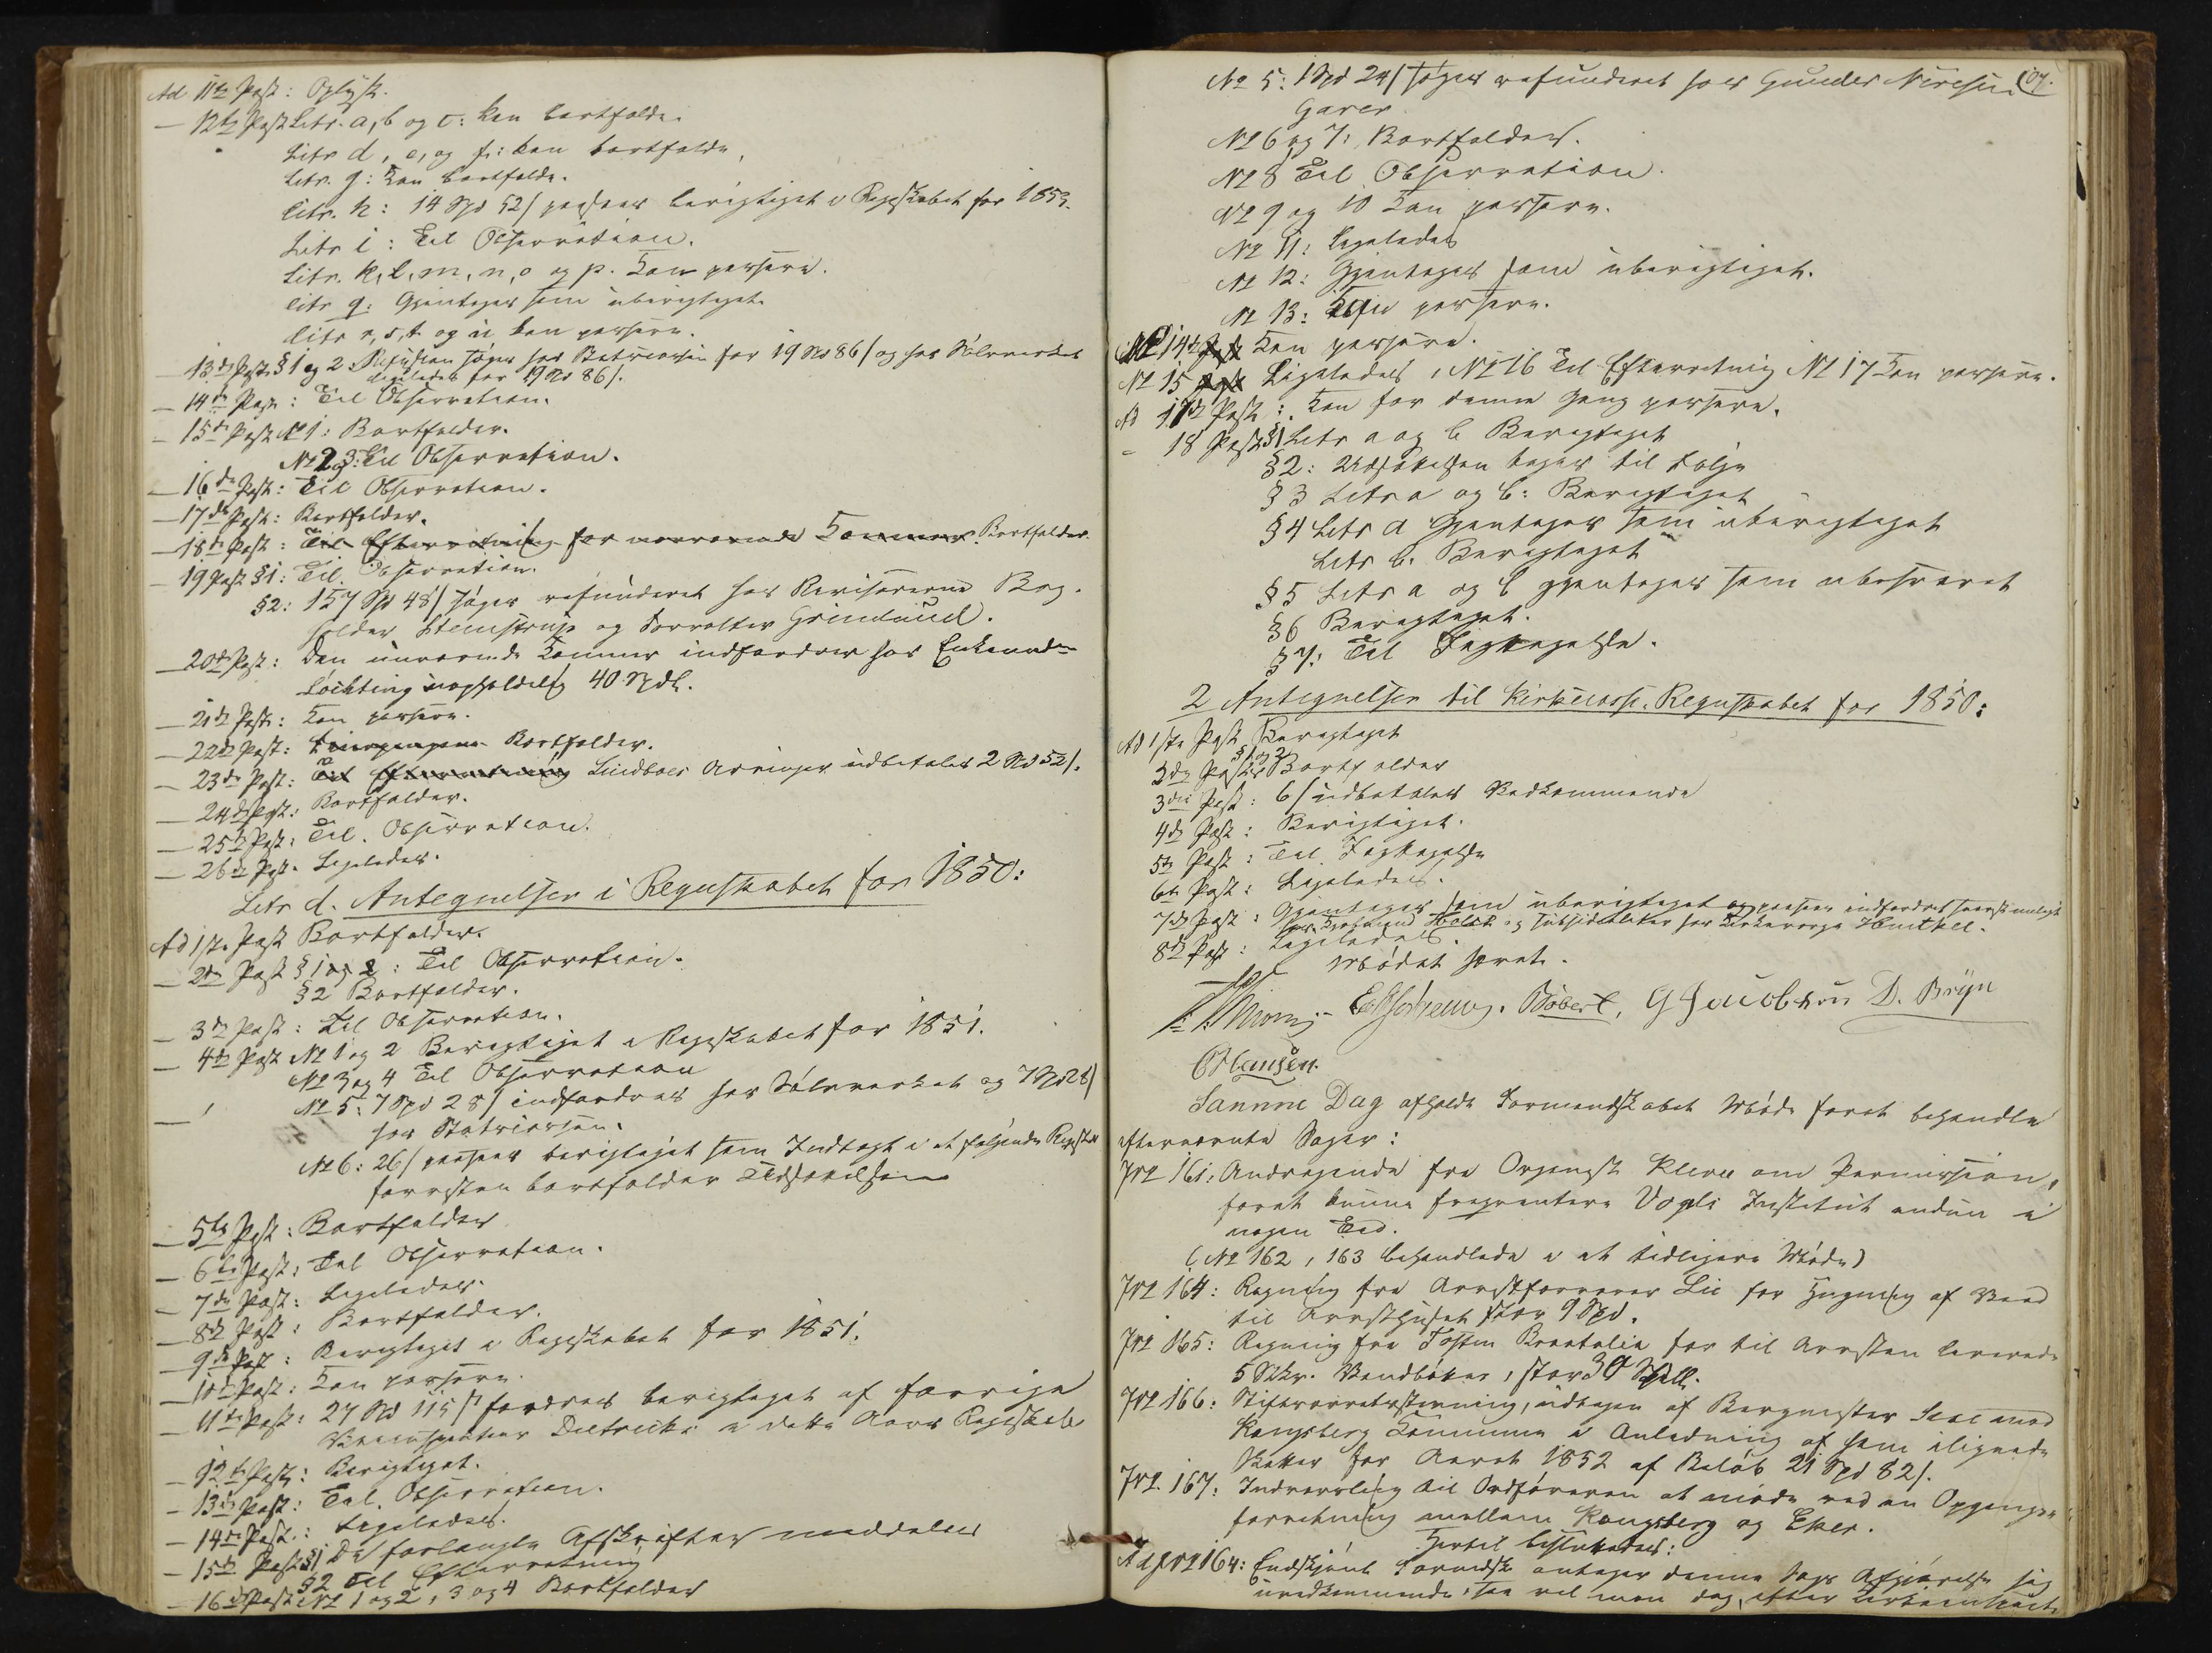 Ad 11te Post: Oplyst.
— 12te Post Litr. a, b og c: kan bortfalde.
Litr d, e, og f: kan bortfalde,
Litr. g: Kan bortfalde.
Litr. h: 14 Spd 52 s paasees berigtiget i Regnskabet for 1853.
Litr i: Til Observation.
Litr. k, l, m, n, o og p. Kan passere.
Litr q: Gjentages som uberigtiget.
Litr r, s, t og u kan passere.
— 13de Post § 1 og 2 søges hos for 19 Spd 86 s og hos Sølvværket
ligeledes for 19 Spd 86 s.
— 14de Post: Til Observation.
— 15de Post No 1: Bortfalder.
No 2 og 3: Til Observation.
— 16de Post: Til Observation.
— 17de Post: Bortfalder.
— 18de Post: Til Efterretning for nærværende Kæmner. Bortfalder.
— 19 Post § 1: Til Observation.
§2: 157 Spd 48 s søges refunderet hos Revisorerne Bog-
holder Stenstrup og Forvalter Grimlund.
— 20de Post: Den nuværende Kæmner indfordrer hos Enkemadm
Løchting 40 Spdl.
— 21de Post: Kan passere.
— 22de Post: Bortfalder.
— 23de Post: Til Efterretning Lindboes Arvinger udbetales 2 Spd 52 s.
— 24de Post: Bortfalder.
— 25de Post: Til Observation.
— 26de Post. Ligeledes.
Litr d. Antegnelser i Regnskabet for 1850:
Ad 1ste Post Bortfalder.
— 2den Post § 1 og 2: Til Observation.
§2 Bortfalder.
— 3de Post: Til Observation.
— 4de Post No 1 og 2 Berigtiget i Regnskabet for 1851.
No 3 og 4 Til Observation
No 5: 7 Spd 28 s indfordres hos Sølvværket og 7 Spd 28 s
hos
No 6: 26 s paasees berigtiget som Indtægt i et følgende Regnskab
forresten bortfalder Udsættelsen
— 5te Post: Bortfalder
— 6te Post: Til Observation.
— 7de Post: Ligeledes.
— 8de Post: Bortfalder.
— 9de Post: Berigtiget i Regnskabet for 1851.
— 10de Post: Kan passere.
— 11te Post: 27 Spd 115 s fordres berigtiget af forrige
Dietrichs i dette Aars Regnskab
— 12te Post: Berigtiget.
— 13de Post: Til Observation.
— 14de Post: Ligeledes.
— 15de Post § 1 De forlangte Afskrifter meddeles
§2 Til Efterretning
— 16de Post No 1 og 2, 3 og 4 Bortfalder
107.
No 5: 1 Spd 24 s søges refunderet hos Gunder
No 6 og 7: Bortfalder.
No 8 Til Observation.
No 9 og 10 Kan passere.
No 11: Ligeledes
No 12: Gjentages som uberigtiget.
No 13: Kan passere.
No 14de Post Kan passere.
No 15 Post Ligeledes, No 16 Til Efterretning No 17 Kan passere.
Ad 17de Post: Kan for denne Gang passere.
— 18 Post § 1 Litr a og b Berigtiget
§2: Udsættelsen tages til Følge
§3 Litr a og b: Berigtiget
§4 Litr a Gjentages som uberigtiget
Litr b. Berigtiget
§5 Litr a og b gjentages som ubesvaret
§6 Berigtiget.
§7: Til Iagttagelse.
2 Antegnelser til Kirkecasse-Regnskabet for 1850:
Ad 1ste Post Berigtiget
2den Post § 1 og 2 Bortfalder
3die Post: 6 s udbetales Vedkommende
4de Post: Berigtiget.
5te Post: Til Iagttagelse
6te Post: Ligeledes.
7de Post: Gjentages som uberigtiget og paasees indfordret snarest muligt
hos Holst og subsidialiter hos Kirkeværge Heitkel.
8de Post: Ligeledes.
Mødet hævet.
Bøbert, G Jacobsen D. Bryn
O Hansen.
Samme Dag afholdt Formandskabet Møde foret behandle
efternævnte Sager:
Jrl 161: Andragende fra Organist Kleve om Permission,
foret kunne freqventere Vogls Institut endnu i
nogen Tid.
(No 162, 163 behandlede i et tidligere Møde)
Jrl 164: Regning fra Arrestforvarer Lie for Hugning af Veed
til Arresthuset stor 9 Spd.
Jrl 165: Regning fra Tosten Brattalie for til Arresten leverede
5 Stkr. Vandbøtter, stor 30 Skill.
Jrl 166: Stiftsoverretsstevning, udtagen af Bergmester mod
Kongsberg Kommune i Anledning af ham ilignede
Skatter for Aaret 1852 af Beløb 21 Spd 82 s.
Jrl. 167: Indvarsling til Ordføreren at møde ved en Opgangs-
forretning mellem Kongsberg og Eker.
Hertil besluttedes:
Ad Jrl 164: Endskjønt Formdsk antager denne Sags Afgjørelse sig
uvedkommende, saa vil man dog, efter